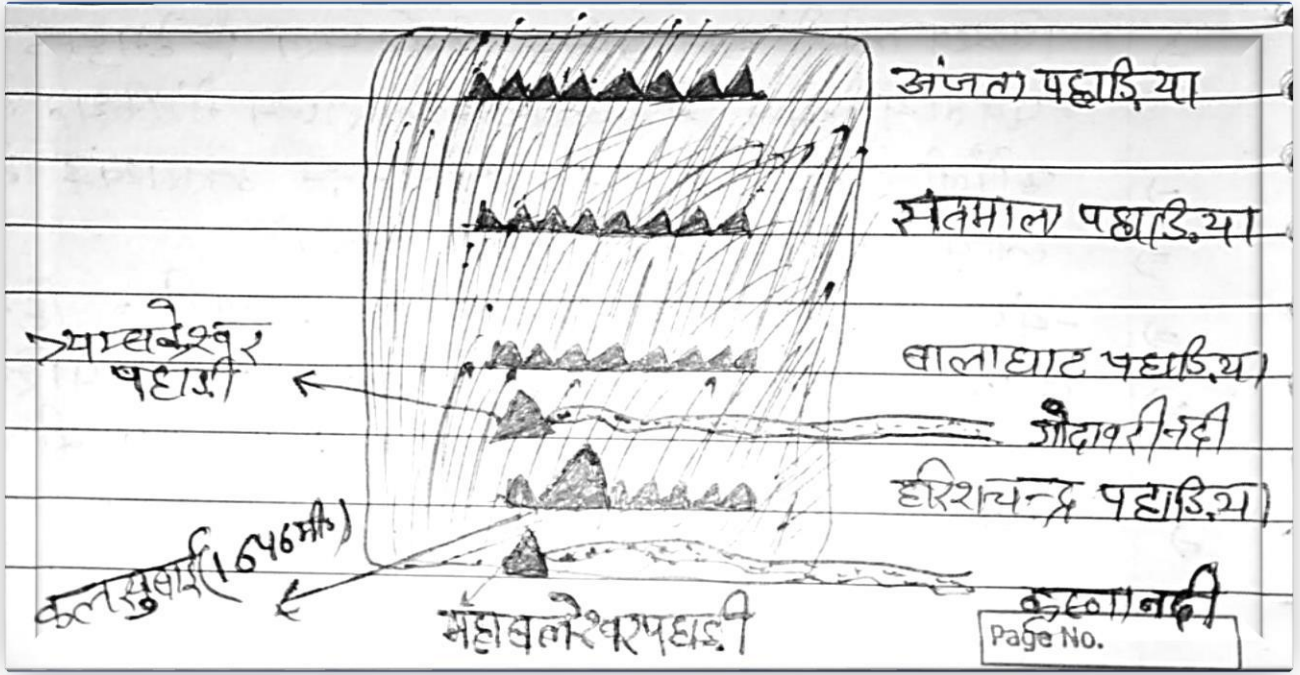 अंजता पहाड़िया
सतमाला पहाड़िया
त्र्यम्बकेश्वर
पहाड़ी
बालाघाट पहाड़िया
गोदावरी नदी
हरिशचन्द्र पहाड़िया
कलसुबाई (1646 मी०)
महाबलेश्वर पहाड़ी
कृष्णा नदी
Page No.